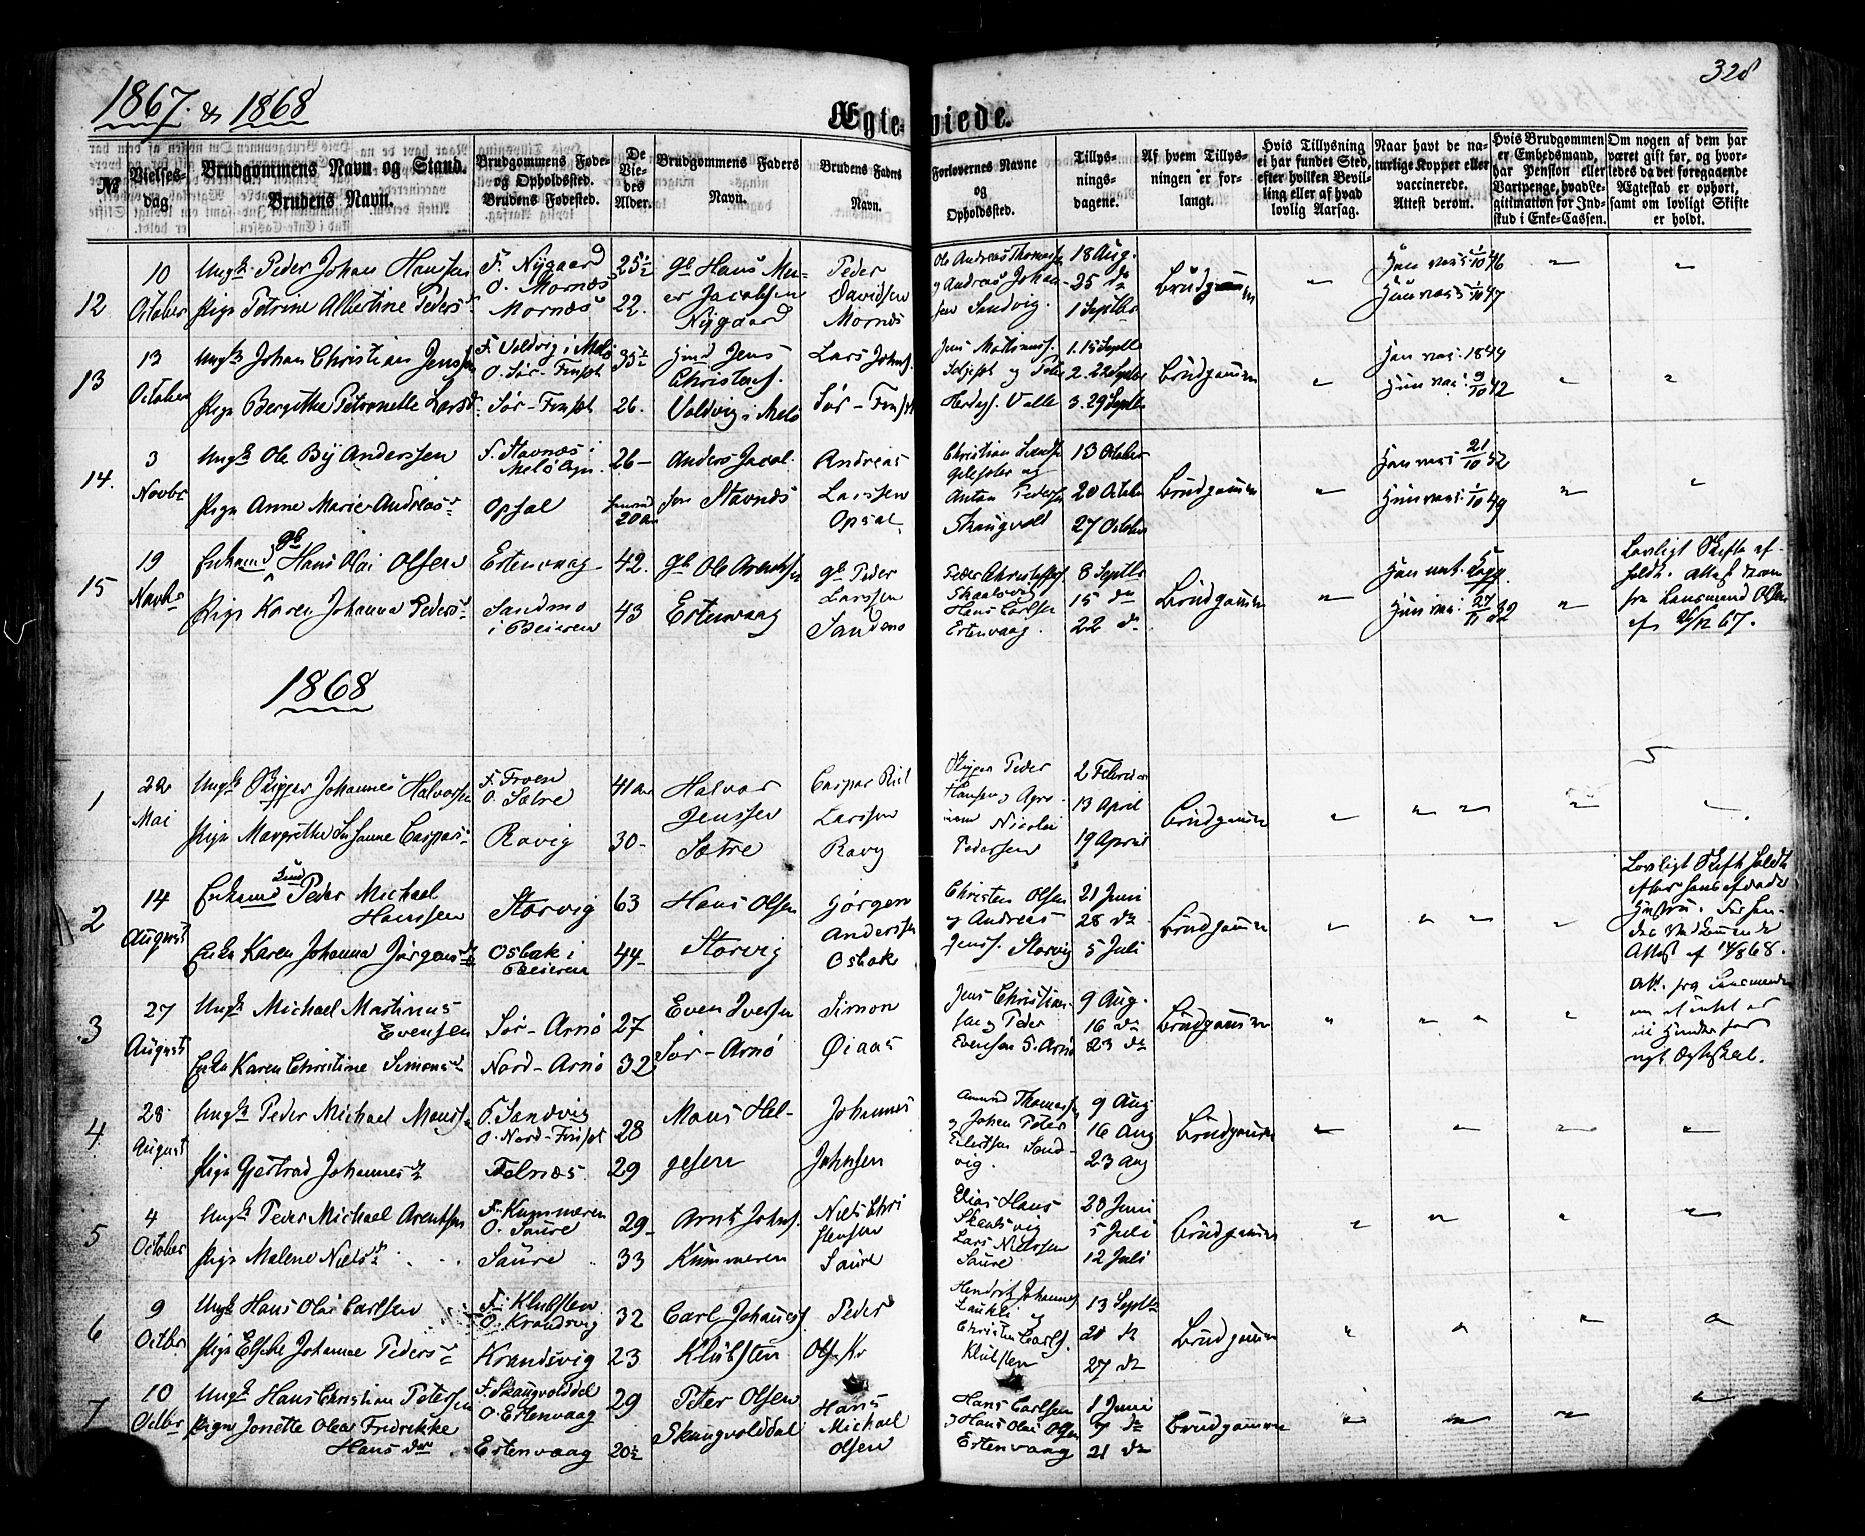 1867. & 1868
328
Ægte-viede.
№
Vielses-dag.
Brudgommens Navn og Stand.
Brudens Navn.
Brudgommens Føde- og Opholdssted.
Brudens Fødested.
De Viedes Alder.
Brudgommens Faders Navn.
Brudens Faders Navn.
Forlovernes Navne og Opholdssted.
Tillysningsdagene.
Af hvem Tillysningen er forlangt.
Hvis Tillysning ei har fundet Sted, efter hvilken Bevilling eller af hvad lovlig Aarsag.
Naar havt de naturlige Kopper eller vaccinerede. Attest derom.
Hvis Brudgommen er Embedsmand, har Pension eller Vartpenge, hvad Legitimation for Indskud i Enke-Cassen.
Om nogen af dem har været gift før, og hvorledes da det foregaaende Ægteskab er ophørt, samt om lovligt Skifte er holdt.
12
10 October
Ungk. Peder Johan Hanssen
Pige Petrine Albertine Peders
F. Nygaard
O. Mornæs
Mornæs
25½
22.
Gb Hans Mei-
er Jacobsen
Nygaard
Peder
Davidsen
Mornæs
Ole Andreas Thomass
og Andreas Johan
sen Sandvig.
18 Aug.
25 do
1 Septbr
Brudgommen
13
13 October
Ungk Johan Christian Jenssen
Pige Bergithe Petronelle Larsd.
F. Valdvig i Melø
O. Sør-Finset
Sør-Finset
35½
26.
Jens
Christens.
Valdvig i Melø
Lars Johns.
Sør-Finset
1. 15 Septb
2. 22 Septbr
3. 29 Septb
Brudgommen
Han vac. 1844
Hun vac. 9/10 42
14.
3 Novbr
Ungk Ole By Anderssen
Pige Anne Marie Andreas
F. Stavnæs i
Melø
Opsal
26
20
Anders Jacob-
sen Stavnæs
Andreas
Larssen
Opsal
Christian
Anton Peders
Skaugvold
13 October
20 October
27 October
Brudgommen
Han vac. 21/10 52
Hun vac. 1/10 49
15
19 Novbr
Enkemd Gb Hans Olai Olsen
Pige Karen Johanna Peders
Estenvaag
Sandmo
i Beieren
42.
43
Gb Ole Arentsen
Estenvaag
Gb Peder
Larssen
Sandmo
Peder Christoffers
Hans Carlsen
Estenvaag.
8 Septbr
15 do
22 do
Brudgommen
Hun vac. 27/11 32
Lovligt Skifte af-
holdt. Attest derom
fra Lensmand Olsen
af 26/12 67.
1868
1
22 Mai
Ungk Skipper Johannes Halvorsen
Pige Margrethe Susanne Caspars
F. Froen
O. Sætre
Ravig
41 Aar
30
Halvor
Jenssen
Sætre
Caspar
Larssen
Skipper Peder
Hansen og
Nicolai
Pederssen
2 Februar
13 April
19 April
Brudgommen
2
14 August
Enkemd Peder Michael
Hanssen
Enke Karen Johanna Jørgensd
Storvig
Osbak i
Beieren
63
44
Hans Olsen
Storvig
Jørgen
Anderssen
Osbak
Christen Olsen
og Andreas
Jenss. Storvig
21 Juni
28 do
5 Juli
Brudgommen
Lovligt Skifte holdt
efter hans afdøde
Hustru.
Attest af 14/8 68.
3
27 August
Ungk Michael Martinus
Evensen
Enke Karen Christine Simonsd
Sør-Arnø
Nord-Arnø
27
32
Even Iversen
Sør-Arnø
Simon
Øiaas
Jens Christian-
sen og Peder
Evensen S. Arnø
9 Aug.
16 do
23 do
Brudgommen
4
28 August
Ungk Peder Michael Monssen
Pige Gjertrud Johannesd
F. Sandvig
O. Nord-Finset
Felnæs
28
29
Mons Hel-
gesen
Johannes
Johnsen
Amund Thomassen
og Johan Peter
Eilertsen Sand-
vig.
9 Aug
16 Aug
23 Aug
Brudgommen
5
4 October
Ungk Peder Michael Arentsen
Pige Malene Nielsd
F. Kummeren
O. Saure
Saure
29
33
Arnt Johns.
Kummeren
Niels Chri
stensen
Saure
Elias Hans
Skaalsvig
Lars Nielssen
Saure
28 Juni
5 Juli
12 Juli
Brudgommen
6
9 Octbr
Ungk Hans Olai Carlsen
Pige Elsche Johanne Peders
F. Klubsten
O. Krandsvig
Krandsvig
32
23
Carl Johannes.
Klubsten
Peder
Ols. Kr
Hendrik Johannes
Laukli og
Christen Carls.
Klubsten
13 Septbr
20 do
27 do
Brudgommen
7
10 Octbr
Ungk Hans Christian Petersen
Pige Jonette Olea Fredrikke
Hans dtr
F. Skaugvolddal
O. Estenvaag
Estenvaag
29
20½
Peter Olsen
Skaugvolddal
Hans
Michael
Olsen
Hans Carlsen
og Hans Olai Olsen
Estenvaag
1 Juni
7 do
21 do
Brudgommen